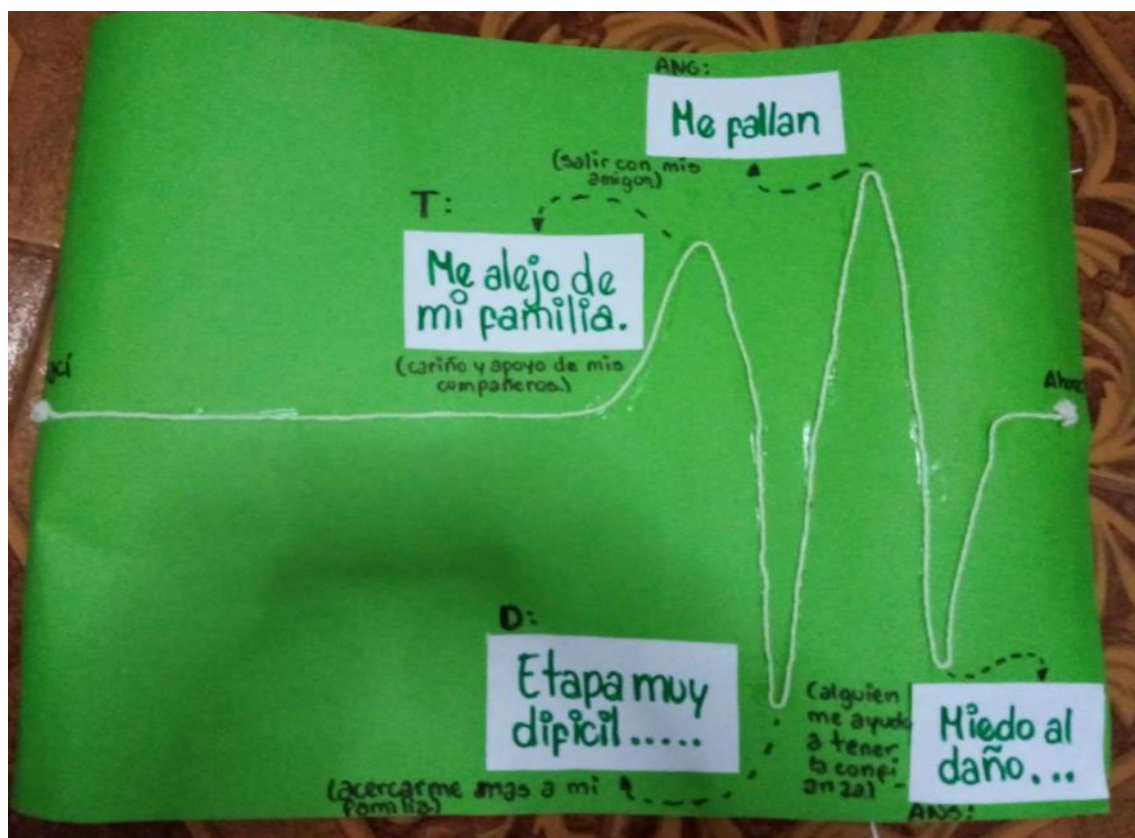 ANG:
Me fallan
(salir con mis
amigos)
T:
Me alejo de
mi familia.
(cariño y apoyo de mis
compañeros.)
ací
Ahora
D:
Etapa muy
dificil.....
(acercarme mas a mi
familia)
(alguien
me ayudo
a tener
la confi-
anza)
Miedo al
daño...
ANG: